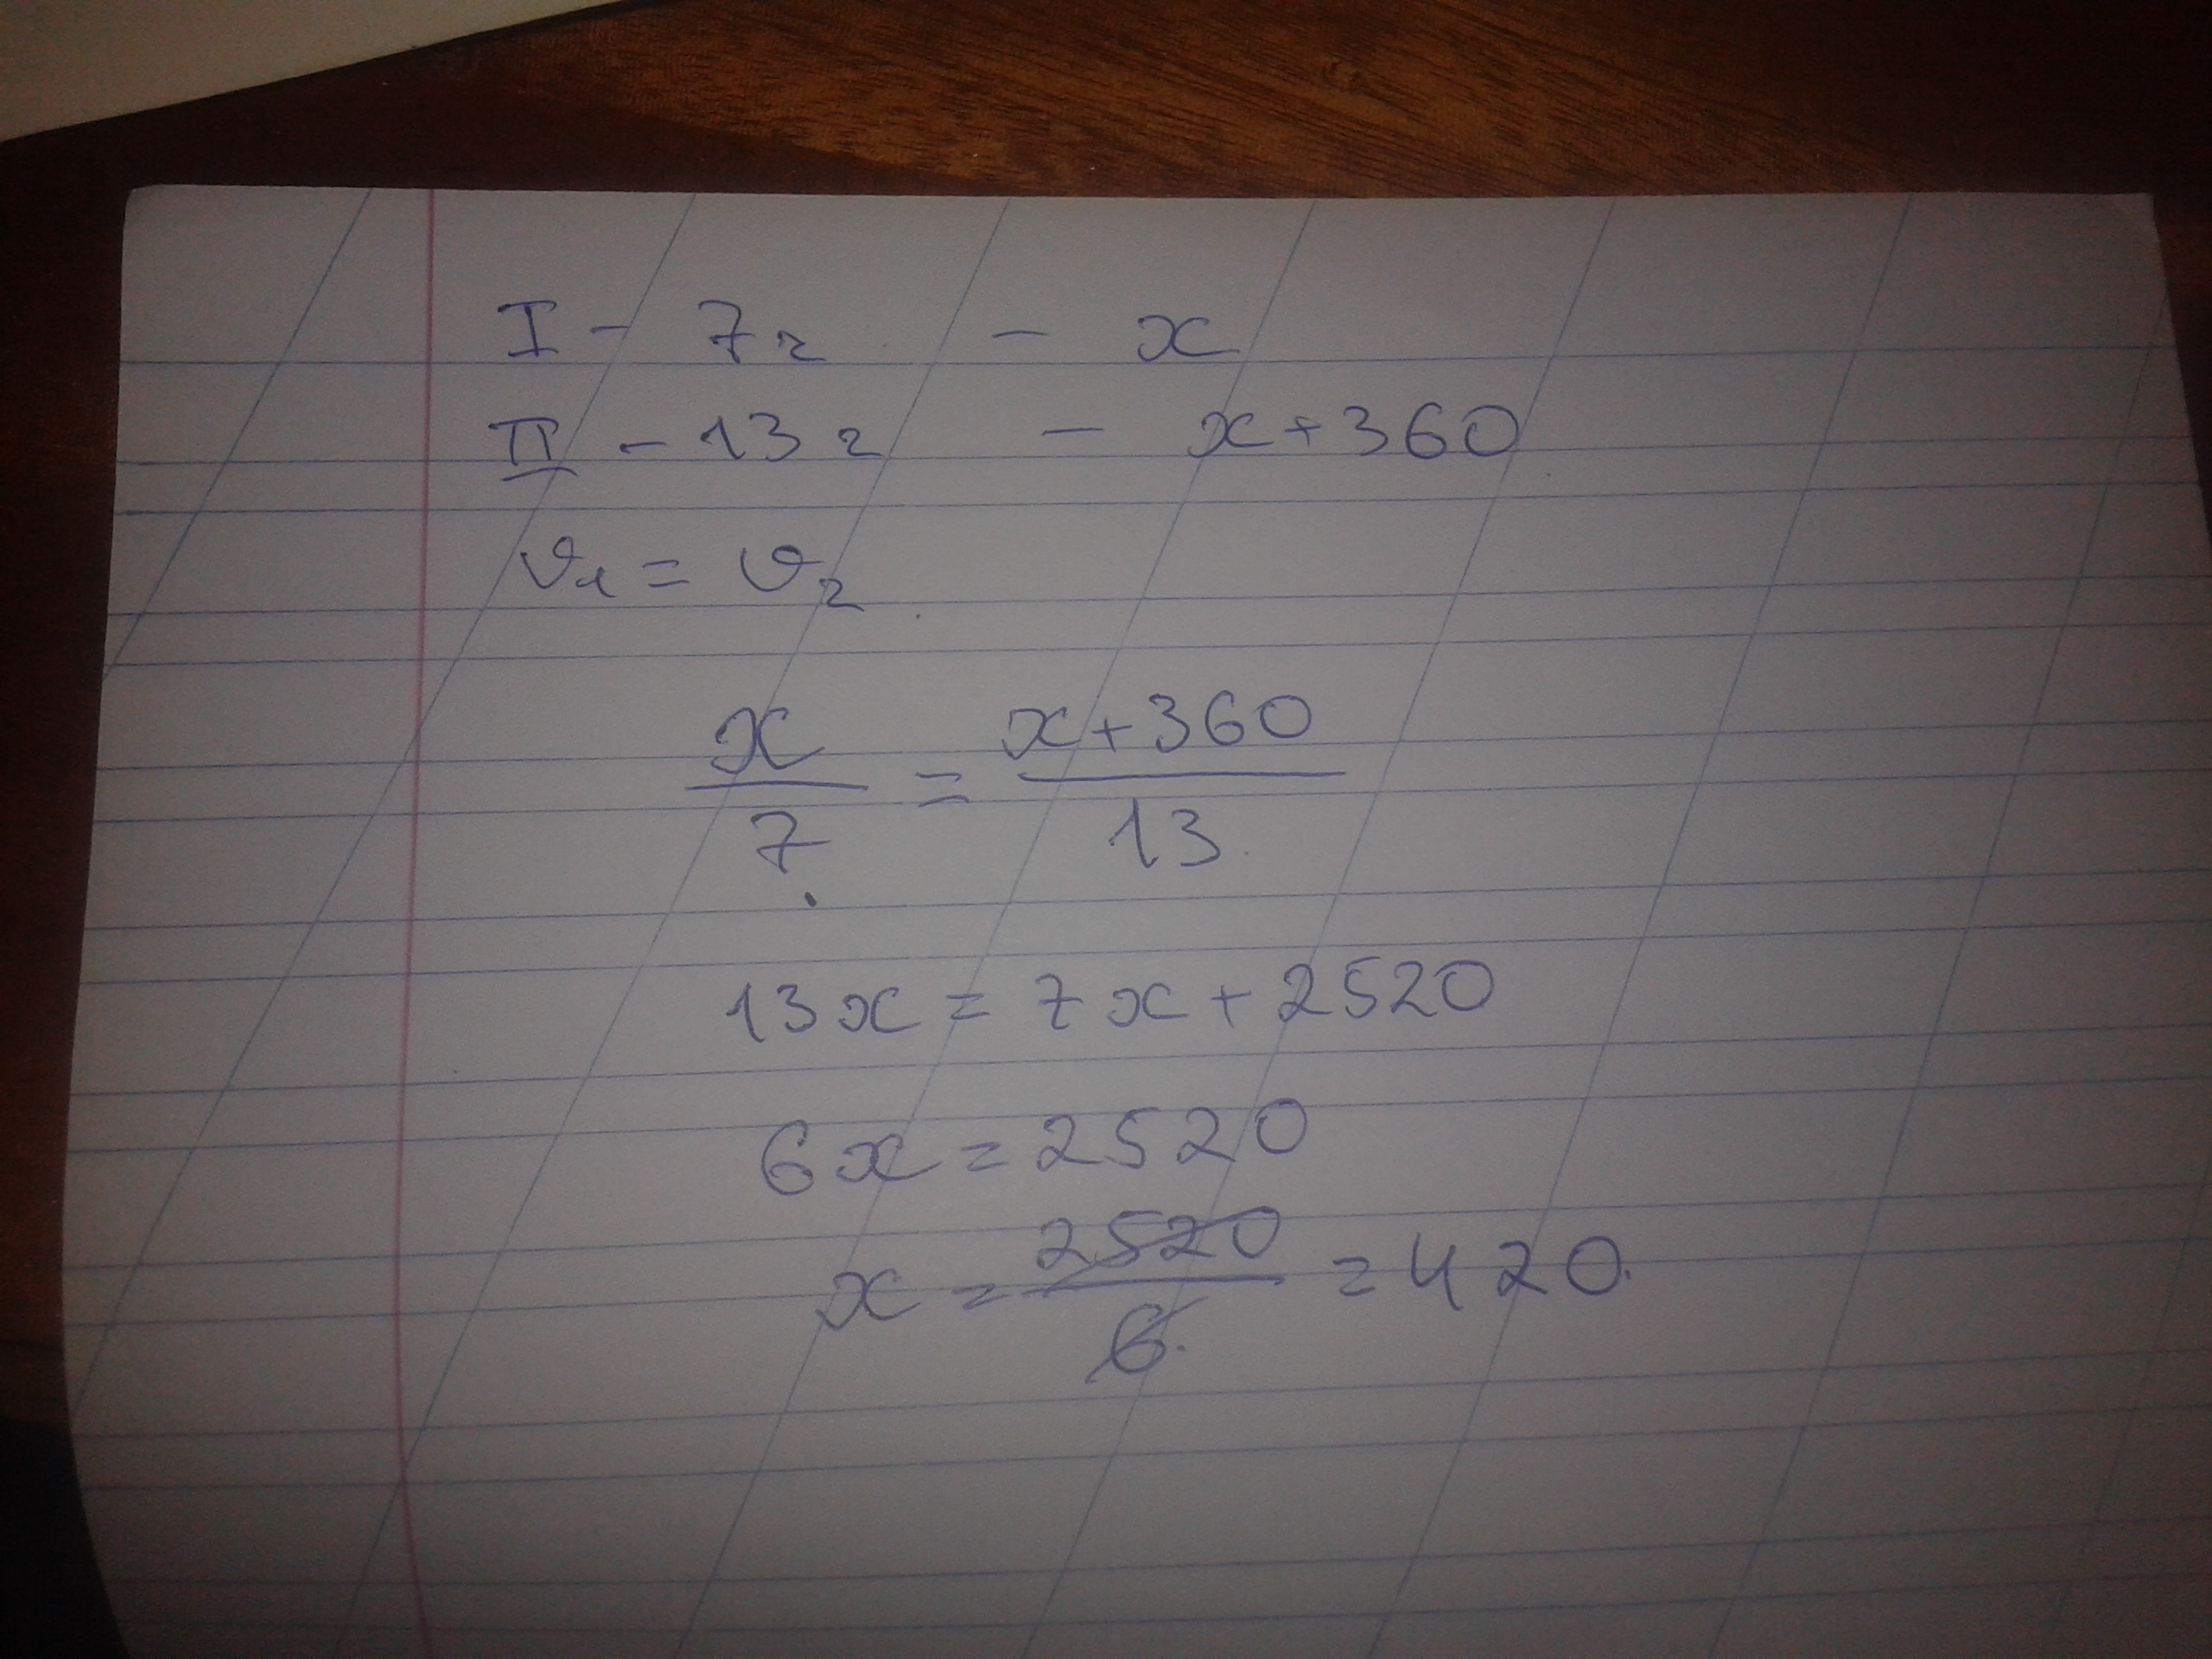 I - 7г - x
II - 13г - x+360
v₁ = v₂
x/7 = x+360/13
13x = 7x + 2520
6x = 2520
x = 2520/6 = 420.